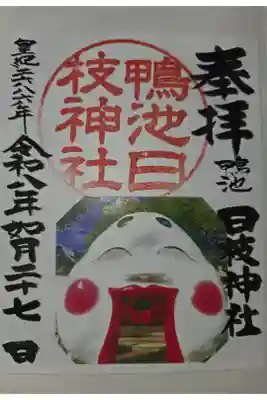 奉拝
鴨池
日枝神社
鴨池日
枝神社
皇紀二六八六年
令和八年如月二十七日